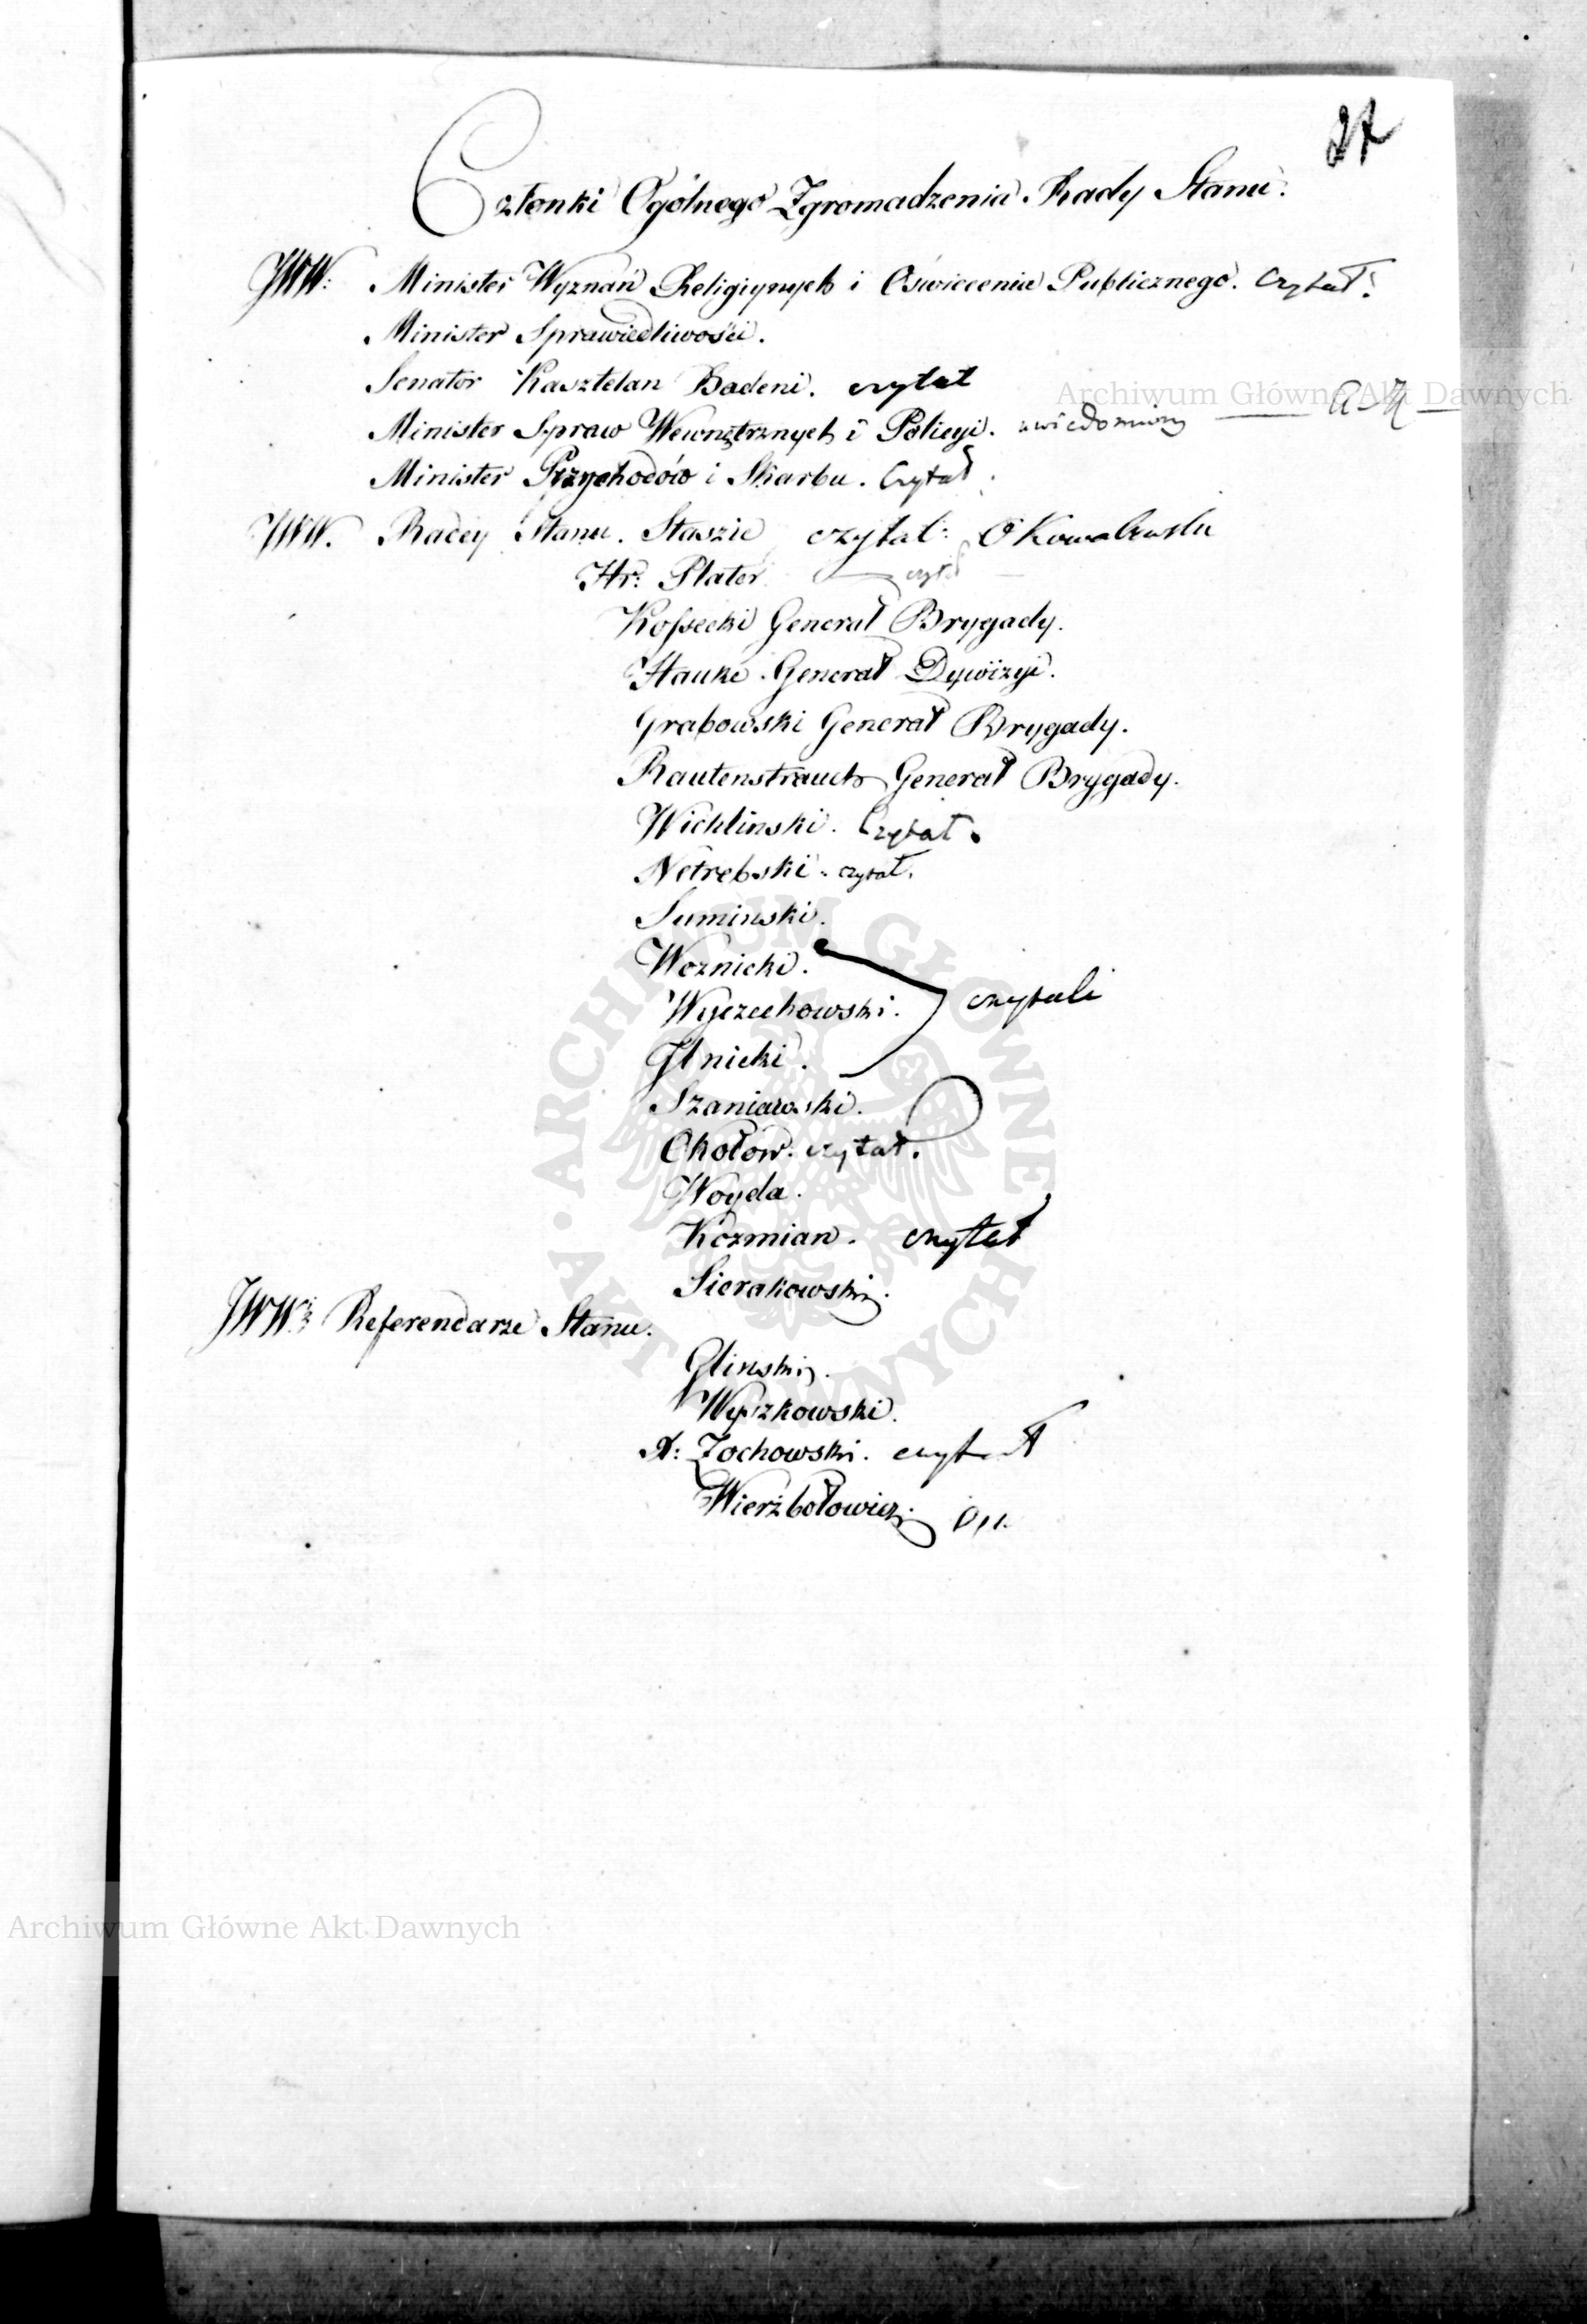 27
Członki Ogólnego Zgromadzenia Rady Stanu.
JWW: Minister Wyznań Religiynych i Oświecenia Publicznego. Czytał.
Minister Sprawiedliwości.
Senator Kasztelan Badeni. czytał
Archiwum Główne Akt Dawnych
Minister Spraw Wewnętrznych i Policyi. uwiadomiony
Minister Przychodów i Skarbu. Czytał.
JWW. Radcy Stanu. Staszic czytał: O Kowalewski
Hr: Plater czytał
Kossecki Generał Brygady.
Hauke Generał Dywizyi.
Grabowski Generał Brygady.
Rautenstrauch Generał Brygady.
Wichlinski. Czytał.
Netrebski. czytał.
Suminski.
Woznicki.
Wyczechowski. czytali
Jlnicki.
Szaniawski.
Okołow. czytał.
Woyda.
Kozmian. czytał
Sierakowski.
JWW: Referendarze Stanu.
Glinski.
Wyszkowski.
X: Zochowski. czytał
Wierzbołowicz.
ARCHIWUM GŁÓWNE AKT DAWNYCH
Archiwum Główne Akt Dawnych